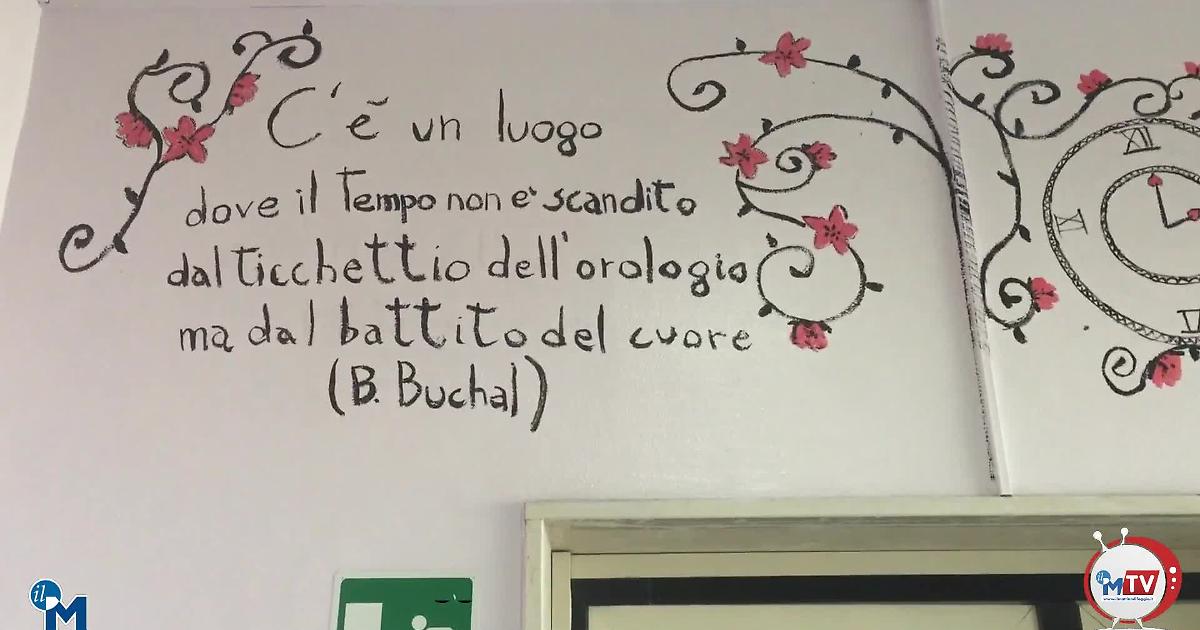 C'é un luogo
dove il Tempo non e' scandito
dal ticchettio dell'orologio
ma dal battito del cuore
(B. Buchal)
XII
XI
il M
il MTV